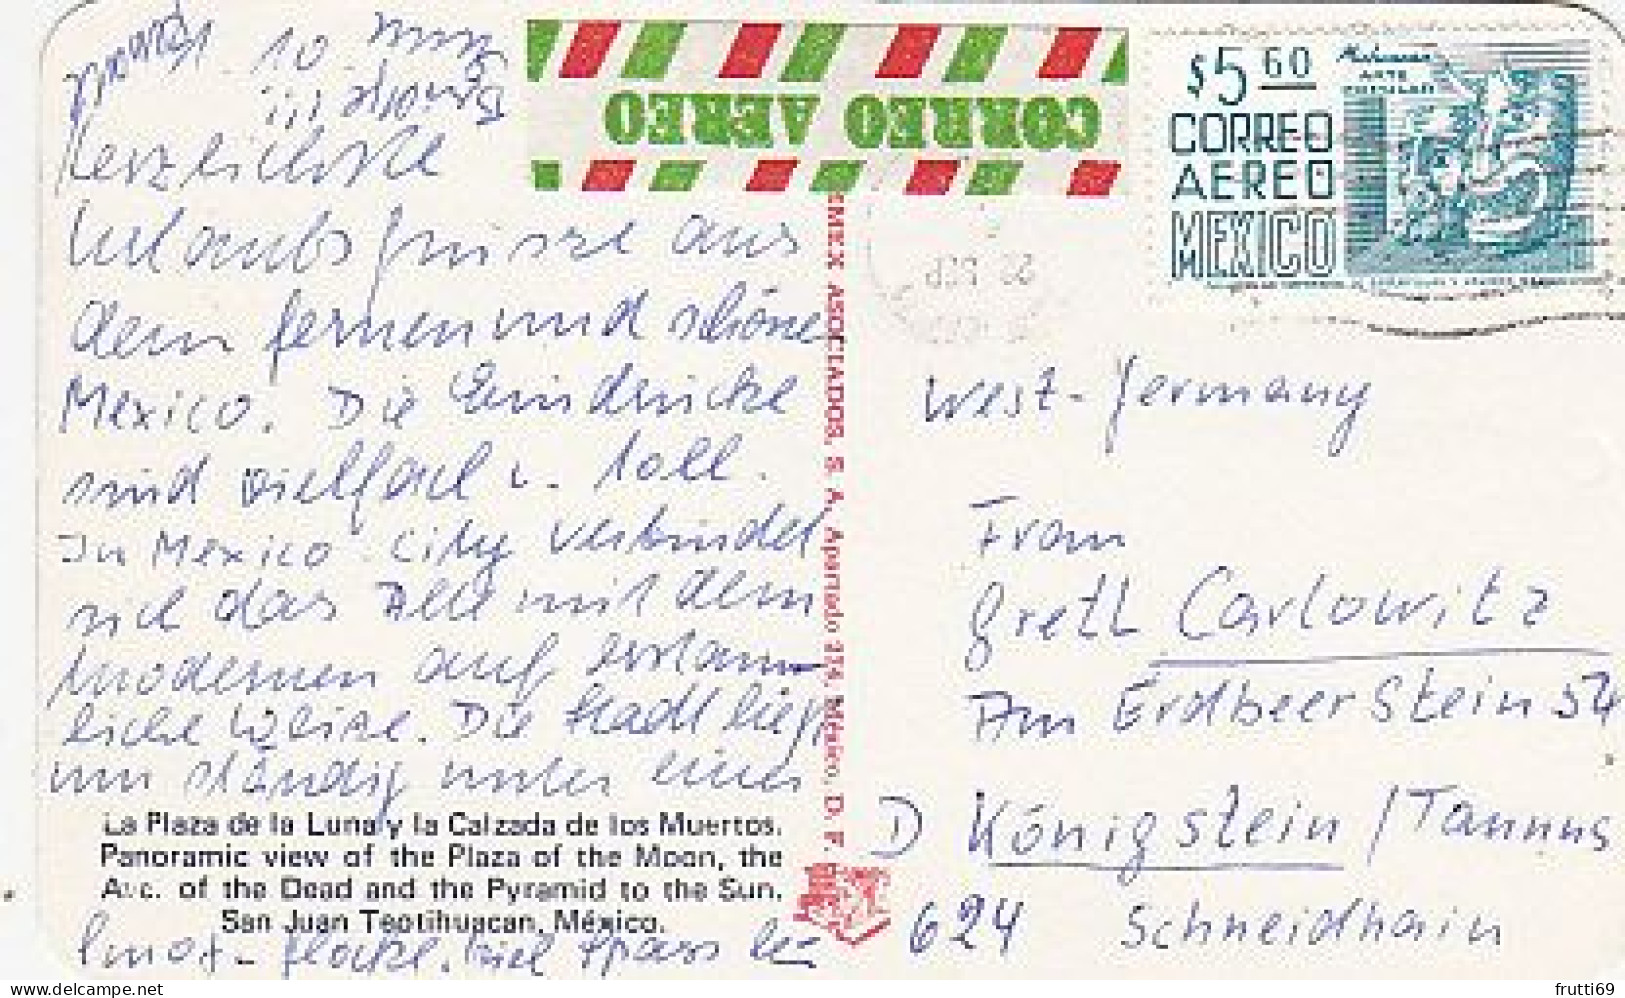 Herzlichste
Urlaubsgrüsse aus
dem fernen und schöne
Mexico. Die Eindrücke
sind vielfach u. toll.
In Mexico-City verbindet
sich das Alte mit dem
modernen auf erstaun-
liche Weise. Die Stadt liegt
ständig unter einer
La Plaza de la Luna y la Calzada de los Muertos.
Panoramic view of the Plaza of the Moon, the
Ave. of the Dead and the Pyramid to the Sun.
San Juan Teotihuacan, México.
Smog-Glocke.
CORREO AEREO
MEX ASOCIADOS, S. A. Apartado México, D. F.
$5 60
ARTE
POPULAR
CORREO
AEREO
MEXICO
West-Germany
Frau
Greth Carlowitz
Am Erdbeerstein 54
D Königstein / Taunus
624 Schneidhain
frutti69